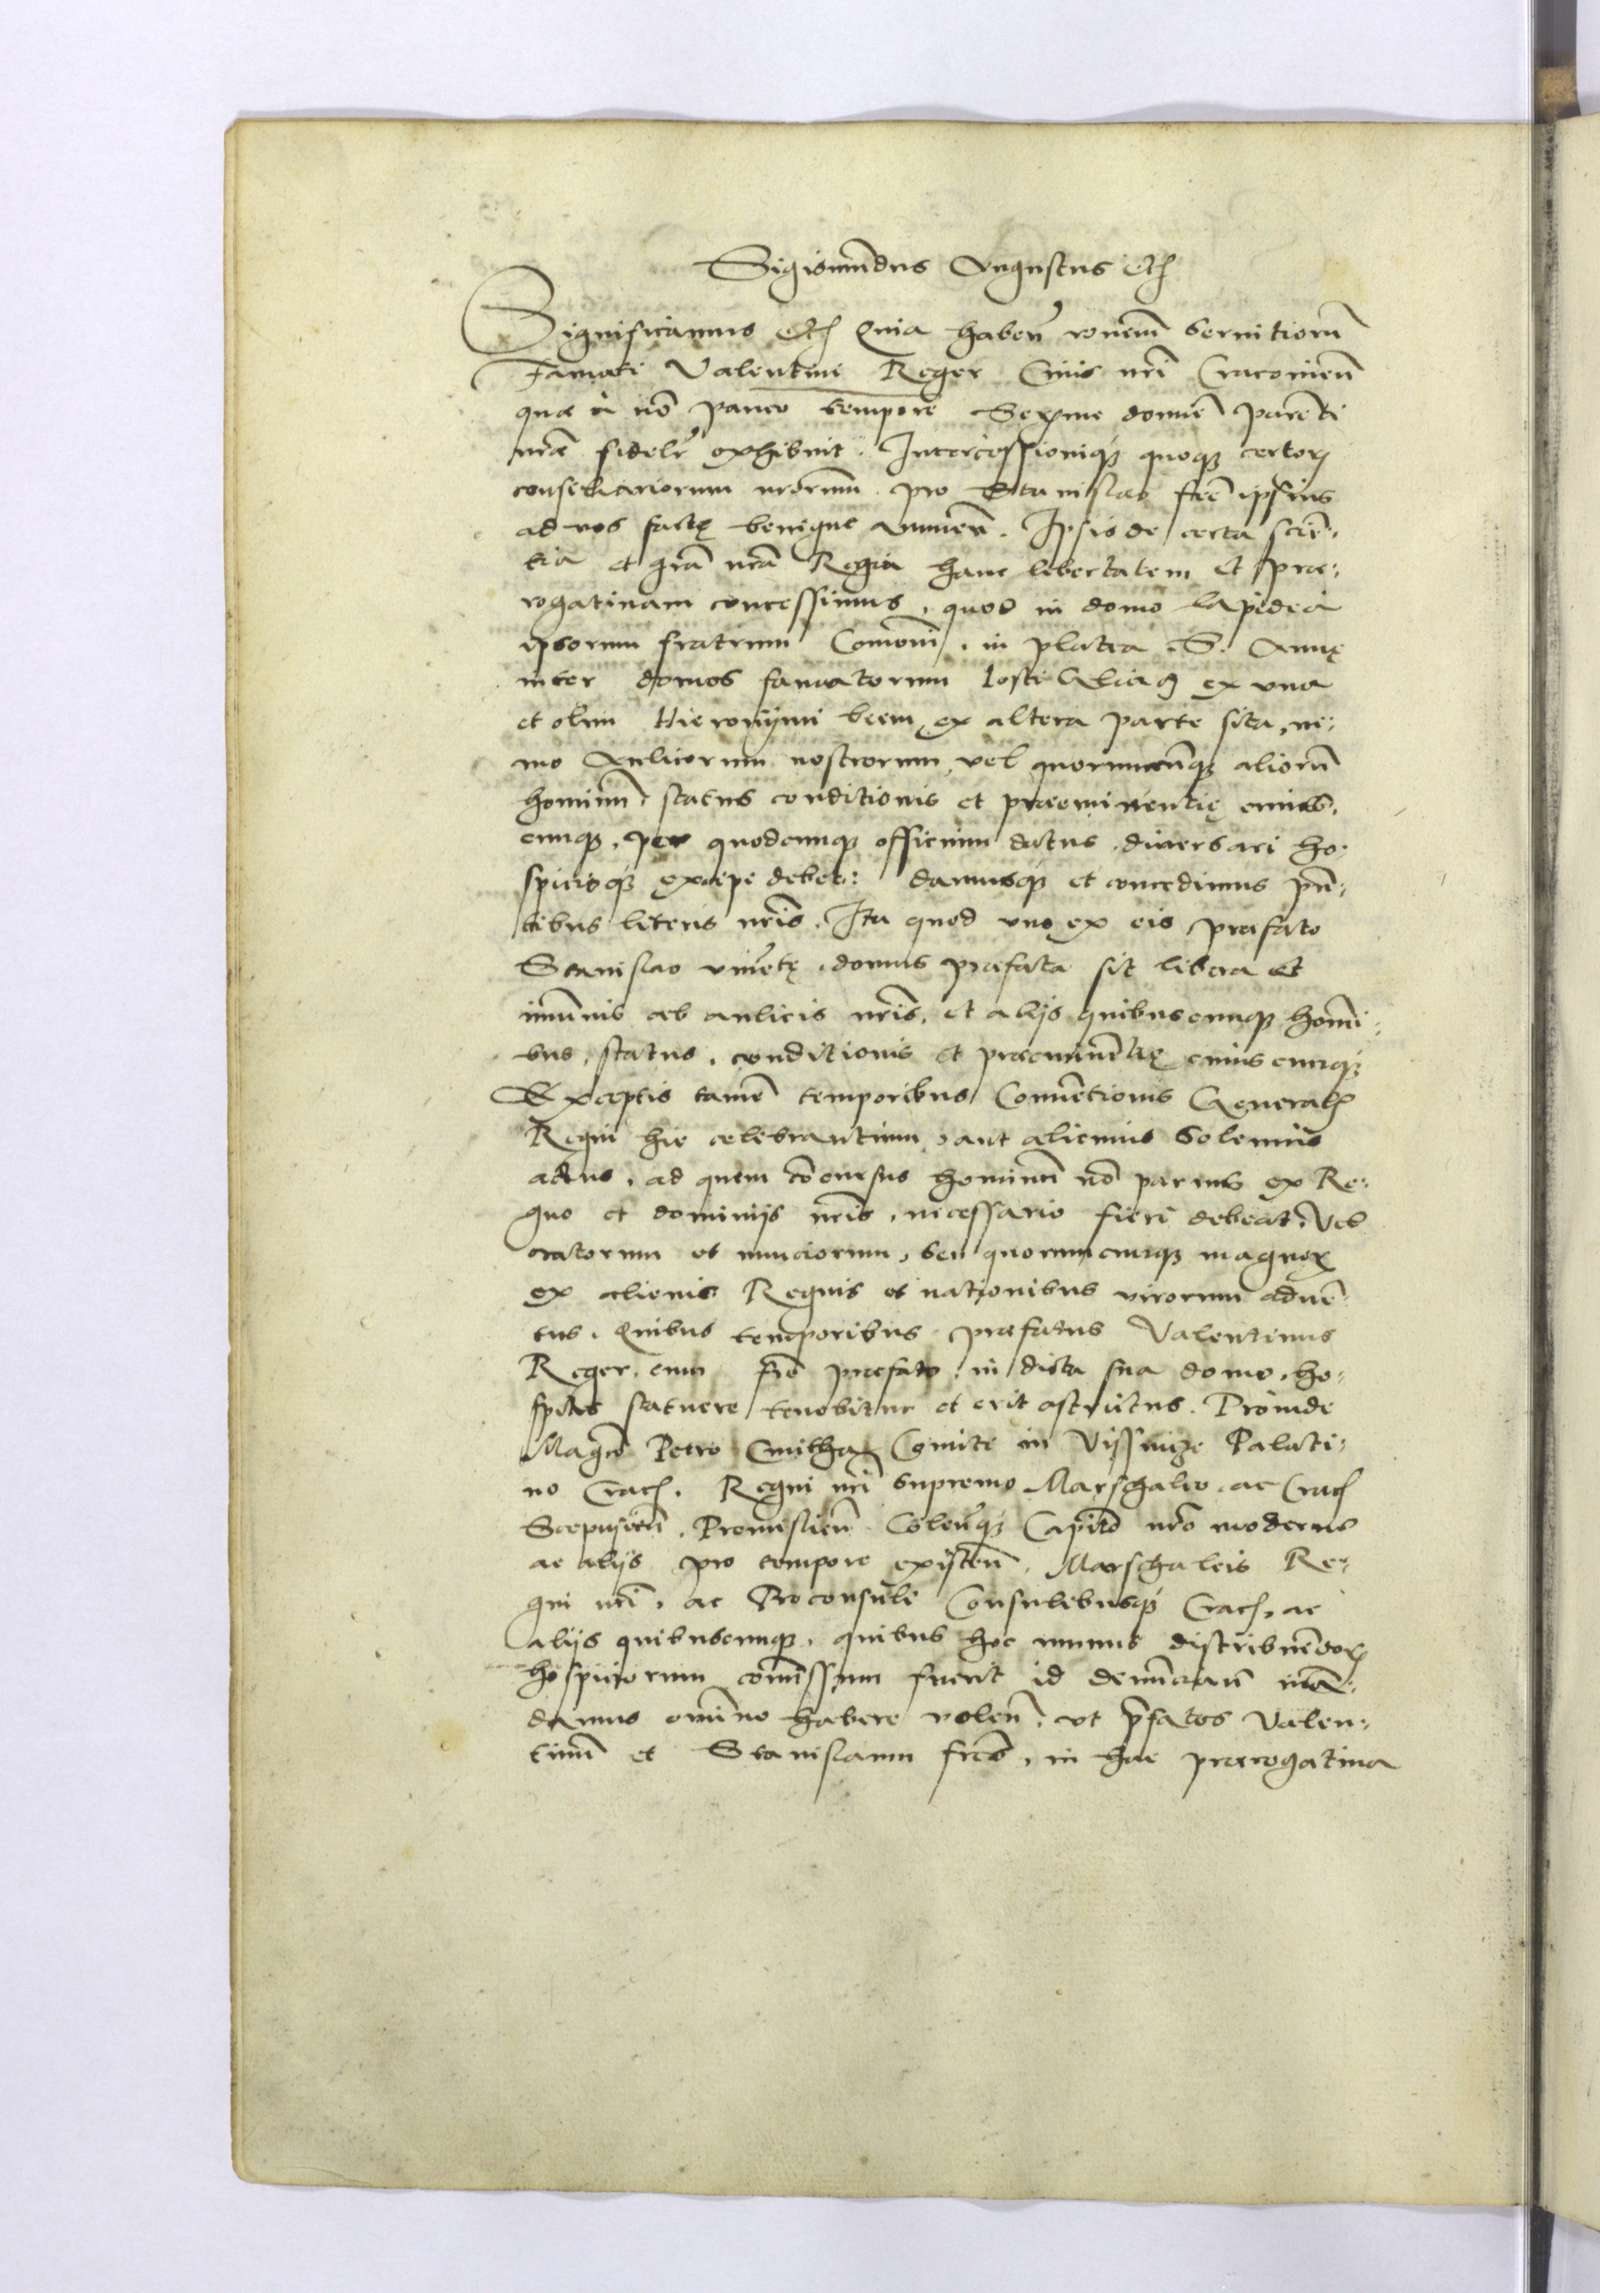 Sigismūdus Augustus etc
Significamus etc Quia haben̄ ronem̄ servitiorū
Famati Valentini Reger Civis nr̄i Cracovien̄
quæ à nō pauco tempore Ser̄me dominē parēti
nr̄æ fidelr̄ exhibuit. Intercessioniqꝫ quoqꝫ certoꝝ
consiliariorum nr̄orum pro Stanislao fr̄e ipsius
ad nos factę benigne annuen̄. Ipsis de certa sciē-
tia et gr̄a nr̄a Regia hanc libertatem et præ-
rogativam concessimus, quod in domo lapidea
ipsorum fratrum Com̄oni, in platea S. Annę
inter domos famatorum Josti Gliacz ex una
et olim Hieronÿmi beem ex altera parte sita, ne-
mo Aulicorum nostrorum, vel quorumcūqꝫ aliorū
hominū, status conditionis et præeminentię cuius-
cunqꝫ, per quodcunqꝫ officium datus, diversari ho-
spicioqꝫ excipi debet: damusqꝫ et concedimus pn̄-
tibus literis nr̄is. Ita quod uno ex eis præfato
Stanislao vivētę, domus præfata sit libera et
im̄unis ab aulicis nr̄is, et alijs quibuscunqꝫ homi-
bus, status, conditionis et præeminētię cuiuscunqꝫ
Exceptis tamē temporibus Conventionis Generalꝭ
Regni hic celebrantium, aut alicuius solemnis
actus, ad quem cōcursus hominū nō parvus ex Re-
gno et dominijs nr̄is, necessario fieri debeat, vel
oratorum et nunciorum, seu quorumcunqꝫ magnoꝝ
ex alienis Regnis et nationibus virorum advē-
tus. Quibus temporibus præfatus Valentinus
Reger, cum fr̄e præfato, in dicta sua domo, ho-
spites statuere tenebitur et erit astrictus. Proinde
Magco Petro Cmitha Comite in Vissnize Palati-
no Crac. Regni nr̄i supremo Marschalco, ac Crac
Scepusien̄. Premislien̄. Colen̄qꝫ Capitō nr̄o moderno
ac alijs pro tempore existen̄. Marschalcis Re-
gni nr̄i, ac Proconsuli Consulibusqꝫ Crac, ac
alijs quibuscunqꝫ, quibus hoc munus distribuēdoꝝ
hospiciorum com̄issum fuerit id denūcian̄ mā-
damus omnīno habere volen̄, ut p̄fatos Valen-
tinū et Stanislaum fr̄es, in hac prærogativa